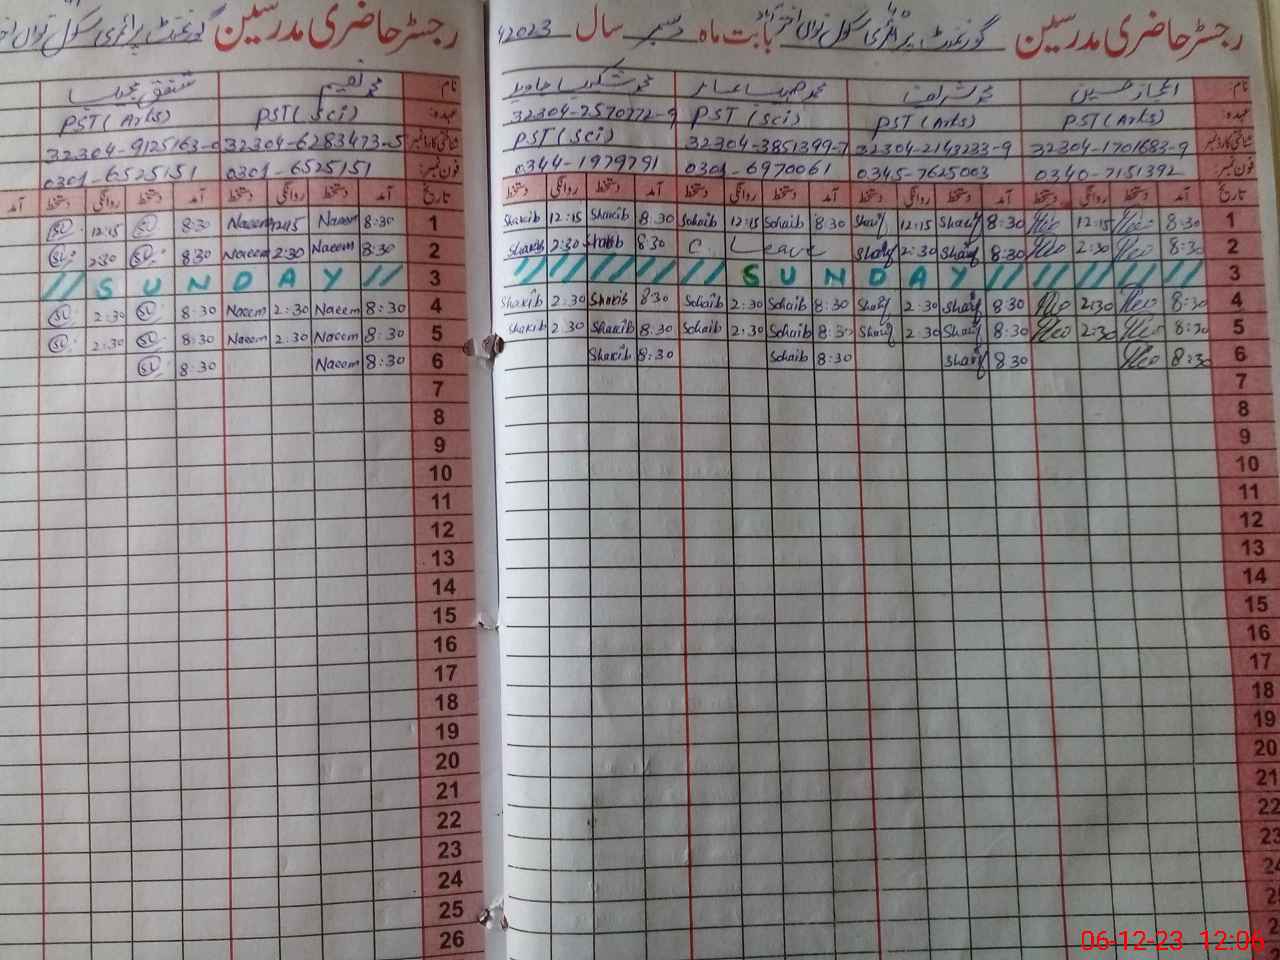 رجسٹر حاضری مدرسین گورنمنٹ پرائمری سکول بابت ماہ دسمبر سال 2023ء
نام اعجاز حسین محمد شریف محمد
عہدہ PST (Arts) PST (Arts) PST (Sci) 32304-2570772-9
شناختی کارڈ نمبر 32304-1701683-9 32304-2143233-9 32304-3851399-7 PST (Sci)
فون نمبر 0340-7151392 0345-7625003 0301-6970061 0344-1979791
تاریخ آمد دستخط روانگی دستخط آمد دستخط روانگی دستخط آمد دستخط روانگی دستخط آمد دستخط روانگی دستخط
Shakib 12:15 Shakib 8:30 Sohaib 12:15 Sohaib 8:30 Sharif 12:15 Sharif 8:30 12:15 8:30 1
Shakib 2:30 Shakib 8:30 C. Leave Sharif 2:30 Sharif 8:30 2:30 8:30 2
// // // // // S U N D A Y // // // // // 3
Shakib 2:30 Shakib 8:30 Sohaib 2:30 Sohaib 8:30 Sharif 2:30 Sharif 8:30 2:30 8:30 4
Shakib 2:30 Shakib 8:30 Sohaib 2:30 Sohaib 8:30 Sharif 2:30 Sharif 8:30 2:30 8:30 5
Shakib 8:30 Sohaib 8:30 Sharif 8:30 8:30 6
7
8
9
10
11
12
13
14
15
16
17
18
19
20
21
22
23
24
25
رجسٹر حاضری مدرسین گورنمنٹ پرائمری سکول
نام محمد نعیم
عہدہ PST (Sci) PST (Arts)
شناختی کارڈ نمبر 32304-6283473-5 32304-9125163-
فون نمبر 0301-6525151 0301-6525151
تاریخ آمد دستخط روانگی دستخط آمد دستخط روانگی دستخط آمد
12:15 8:30 Naeem 12:15 Naeem 8:30 1
2:30 8:30 Naeem 2:30 Naeem 8:30 2
// S U N D A Y // 3
2:30 8:30 Naeem 2:30 Naeem 8:30 4
2:30 8:30 Naeem 2:30 Naeem 8:30 5
8:30 Naeem 8:30 6
7
8
9
10
11
12
13
14
15
16
17
18
19
20
21
22
23
24
25
26
06-12-23 12:06